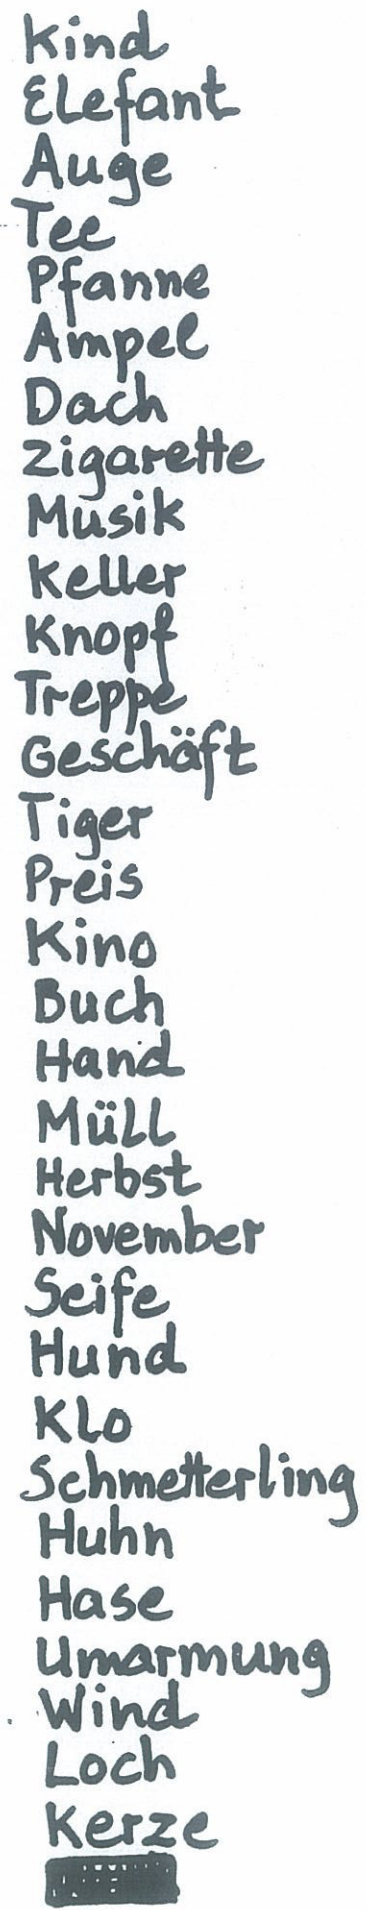 Kind
Elefant
Auge
Tee
Pfanne
Ampel
Dach
Zigarette
Musik
Keller
Knopf
Treppe
Geschäft
Tiger
Preis
Kino
Buch
Hand
Müll
Herbst
November
Seife
Hund
Klo
Schmetterling
Huhn
Hase
Umarmung
Wind
Loch
Kerze